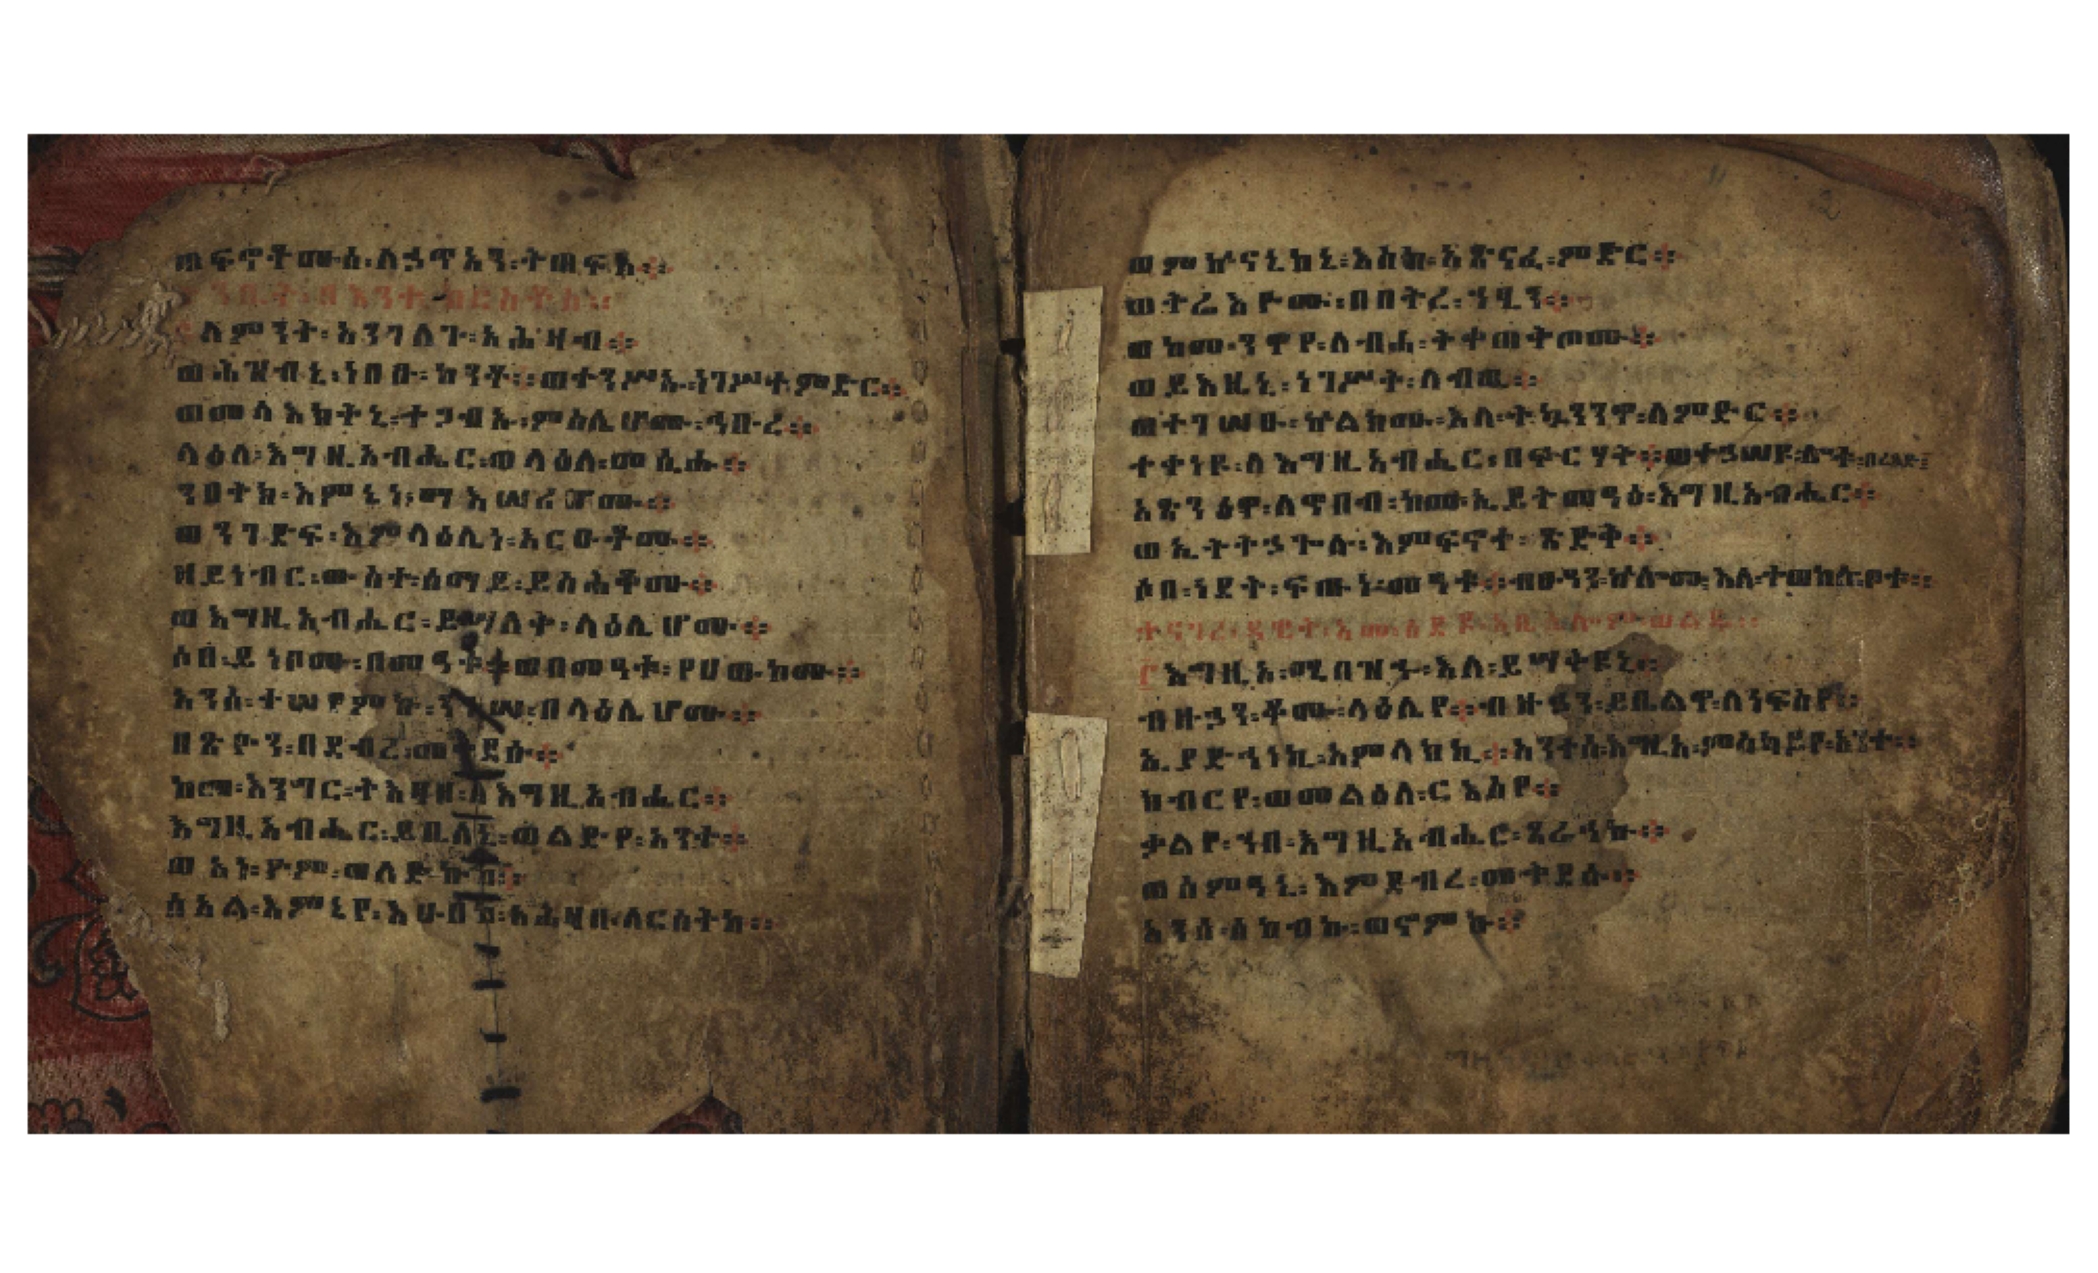 ወፍኖቶሙሰ፡ለኃጥአን፡ትጠፍእ።
ለምንት፡አንገለጉ፡አሕዛብ።
ወሕዝብኒ፡ነበቡ፡ከንቶ።ወተንሥኡ፡ነገሥተ፡ምድር።
ወመላእክትኒ፡ተጋብኡ፡ምስሌሆሙ፡ኅቡረ።
ላዕለ፡እግዚአብሔር፡ወላዕለ፡መሲሑ።
ንበትክ፡እምኔነ፡ማእሠሪሆሙ።
ወንገድፍ፡እምላዕሌነ፡አርዑቶሙ።
ዘይነብር፡ውስተ፡ሰማይ፡ይስሕቆሙ።
ወእግዚአብሔር፡ይሣለቅ፡ላዕሌሆሙ።
ሶበ፡ይነቦሙ፡በመዓቱ።ወበመዓቱ፡የሀውከሙ።
አንሰ፡ተሠየምኩ፡ንጉሠ፡በላዕሌሆሙ።
በጽዮን፡በደብረ፡መቅደሱ።
ከመ፡እንግር፡ትእዛዞ፡ለእግዚአብሔር።
እግዚአብሔር፡ይቤለኒ፡ወልድየ፡አንተ።
ወአነ፡ዮም፡ወለድኩከ።
ሰአል፡እምኔየ፡እሁበከ፡አሕዛበ፡ለርስትከ።
ወምኵናኒከኒ፡እስከ፡አጽናፈ፡ምድር።
ወትሬእዮሙ፡በበትረ፡ኀፂን።
ወከመ፡ንዋየ፡ለብሓ፡ትቀጠቅጦሙ።
ወይእዜኒ፡ነገሥት፡ለብዉ።
ወተገሠፁ፡ኵልክሙ፡እለ፡ትኴንንዋ፡ለምድር።
ተቀነዩ፡ለእግዚአብሔር፡በፍርሃት።ወተኃሠዩ፡ሎቱ፡በረዓድ።
አጽንዕዋ፡ለጥበብ፡ከመ፡ኢይትመዓዕ፡እግዚአብሔር።
ወኢትትኃጐሉ፡እምፍኖተ፡ጽድቅ።
ሶበ፡ነደት፡ፍጡነ፡መዓቱ።ብፁዓን፡ኵሎሙ፡እለ፡ተወከሉ፡ቦቱ።
፫እግዚአ፡ሚበዝኁ፡እለ፡ይሣቅዩኒ።
ብዙኃን፡ቆሙ፡ላዕሌየ።ብዙኃን፡ይቤልዋ፡ለነፍስየ።
ኢያድኅነኪ፡አምላክኪ።አንተሰ፡እግዚእ፡ምስካይየ፡አንተ።
ክብርየ፡ወመልዕለ፡ርእስየ።
ቃልየ፡ኀበ፡እግዚአብሔር፡ጸራኅኩ።
ወሰምዓኒ፡እምደብረ፡መቅደሱ።
አንሰ፡ሰከብኩ፡ወኖምኩ።